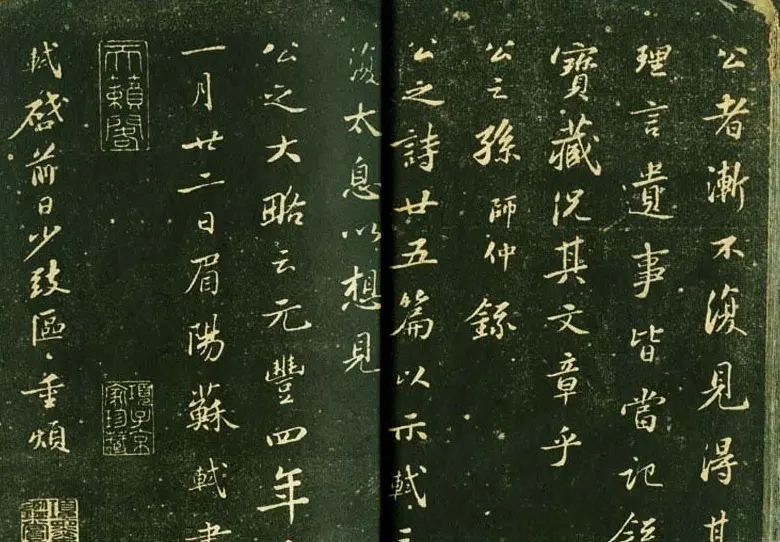 公者漸不復見得其
理言遺事皆當記錄
寶藏況其文章乎
公之孫師仲錄
公之詩廿五篇以示軾三
復太息以想見
公之大略云元豐四年
一月廿二日眉陽蘇軾書
天籟閣
項子京家珍藏
軾啓前日少致區〻重煩